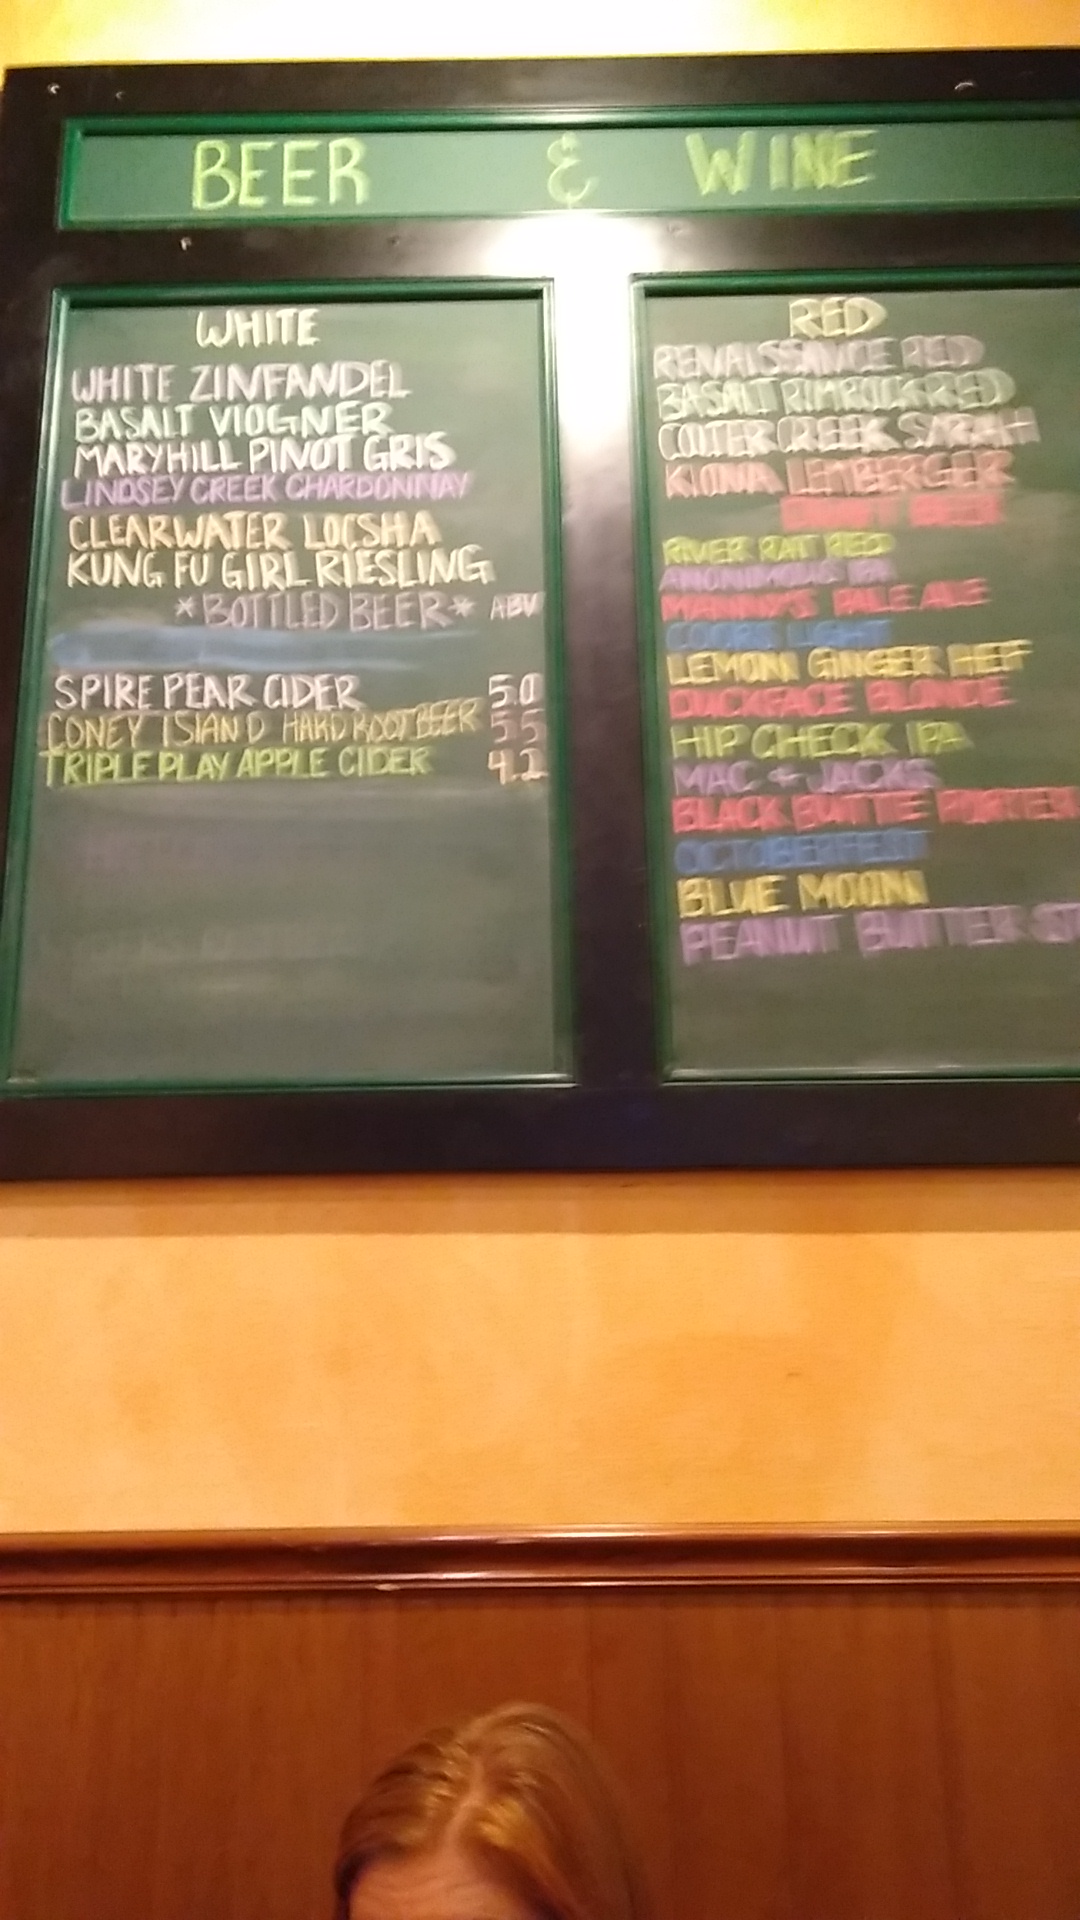 BEER & WINE
WHITE
WHITE ZINFANDEL
BASALT VIOGNER
MARYHILL PINOT GRIS
LINDSEY CREEK CHARDONNAY
CLEARWATER LOCSHA
KUNG FU GIRL RIESLING
*BOTTLED BEER* ABV
SPIRE PEAR CIDER 5.0
CONEY ISLAND HARD ROOT BEER 5.5
TRIPLE PLAY APPLE CIDER 4.2
RED
RENAISSANCE RED
BASALT RIMROCK RED
CREEK SARAH
KIONA LEMBERGER
BEER
RIVER RAT RED
ANONIMOUS IPA
MANNY'S PALE ALE
COORS LIGHT
LEMON GINGER HEF
DUCKFACE BLONDE
HIP CHECK IPA
MAC & JACKS
BLACK BUTTE PORTER
OCTOBERFEST
BLUE MOON
PEANUT BUTTER ST